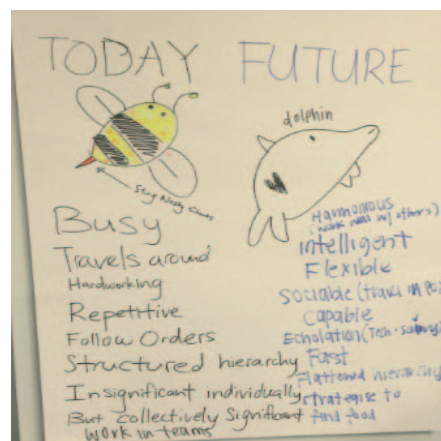 TODAY
FUTURE
dolphin
Sting Nasty
Busy
Travels around
Hardworking
Repetitive
Follow Orders
Structured hierarchy
Insignificant individually
But collectively Significant
Work in teams
Harmonious
(work well w/ others)
intelligent
Flexible
Sociable (travel in
Capable
Echolation (Tech-savvy)
Fast
Flattened hierarchy
strategise to
find food